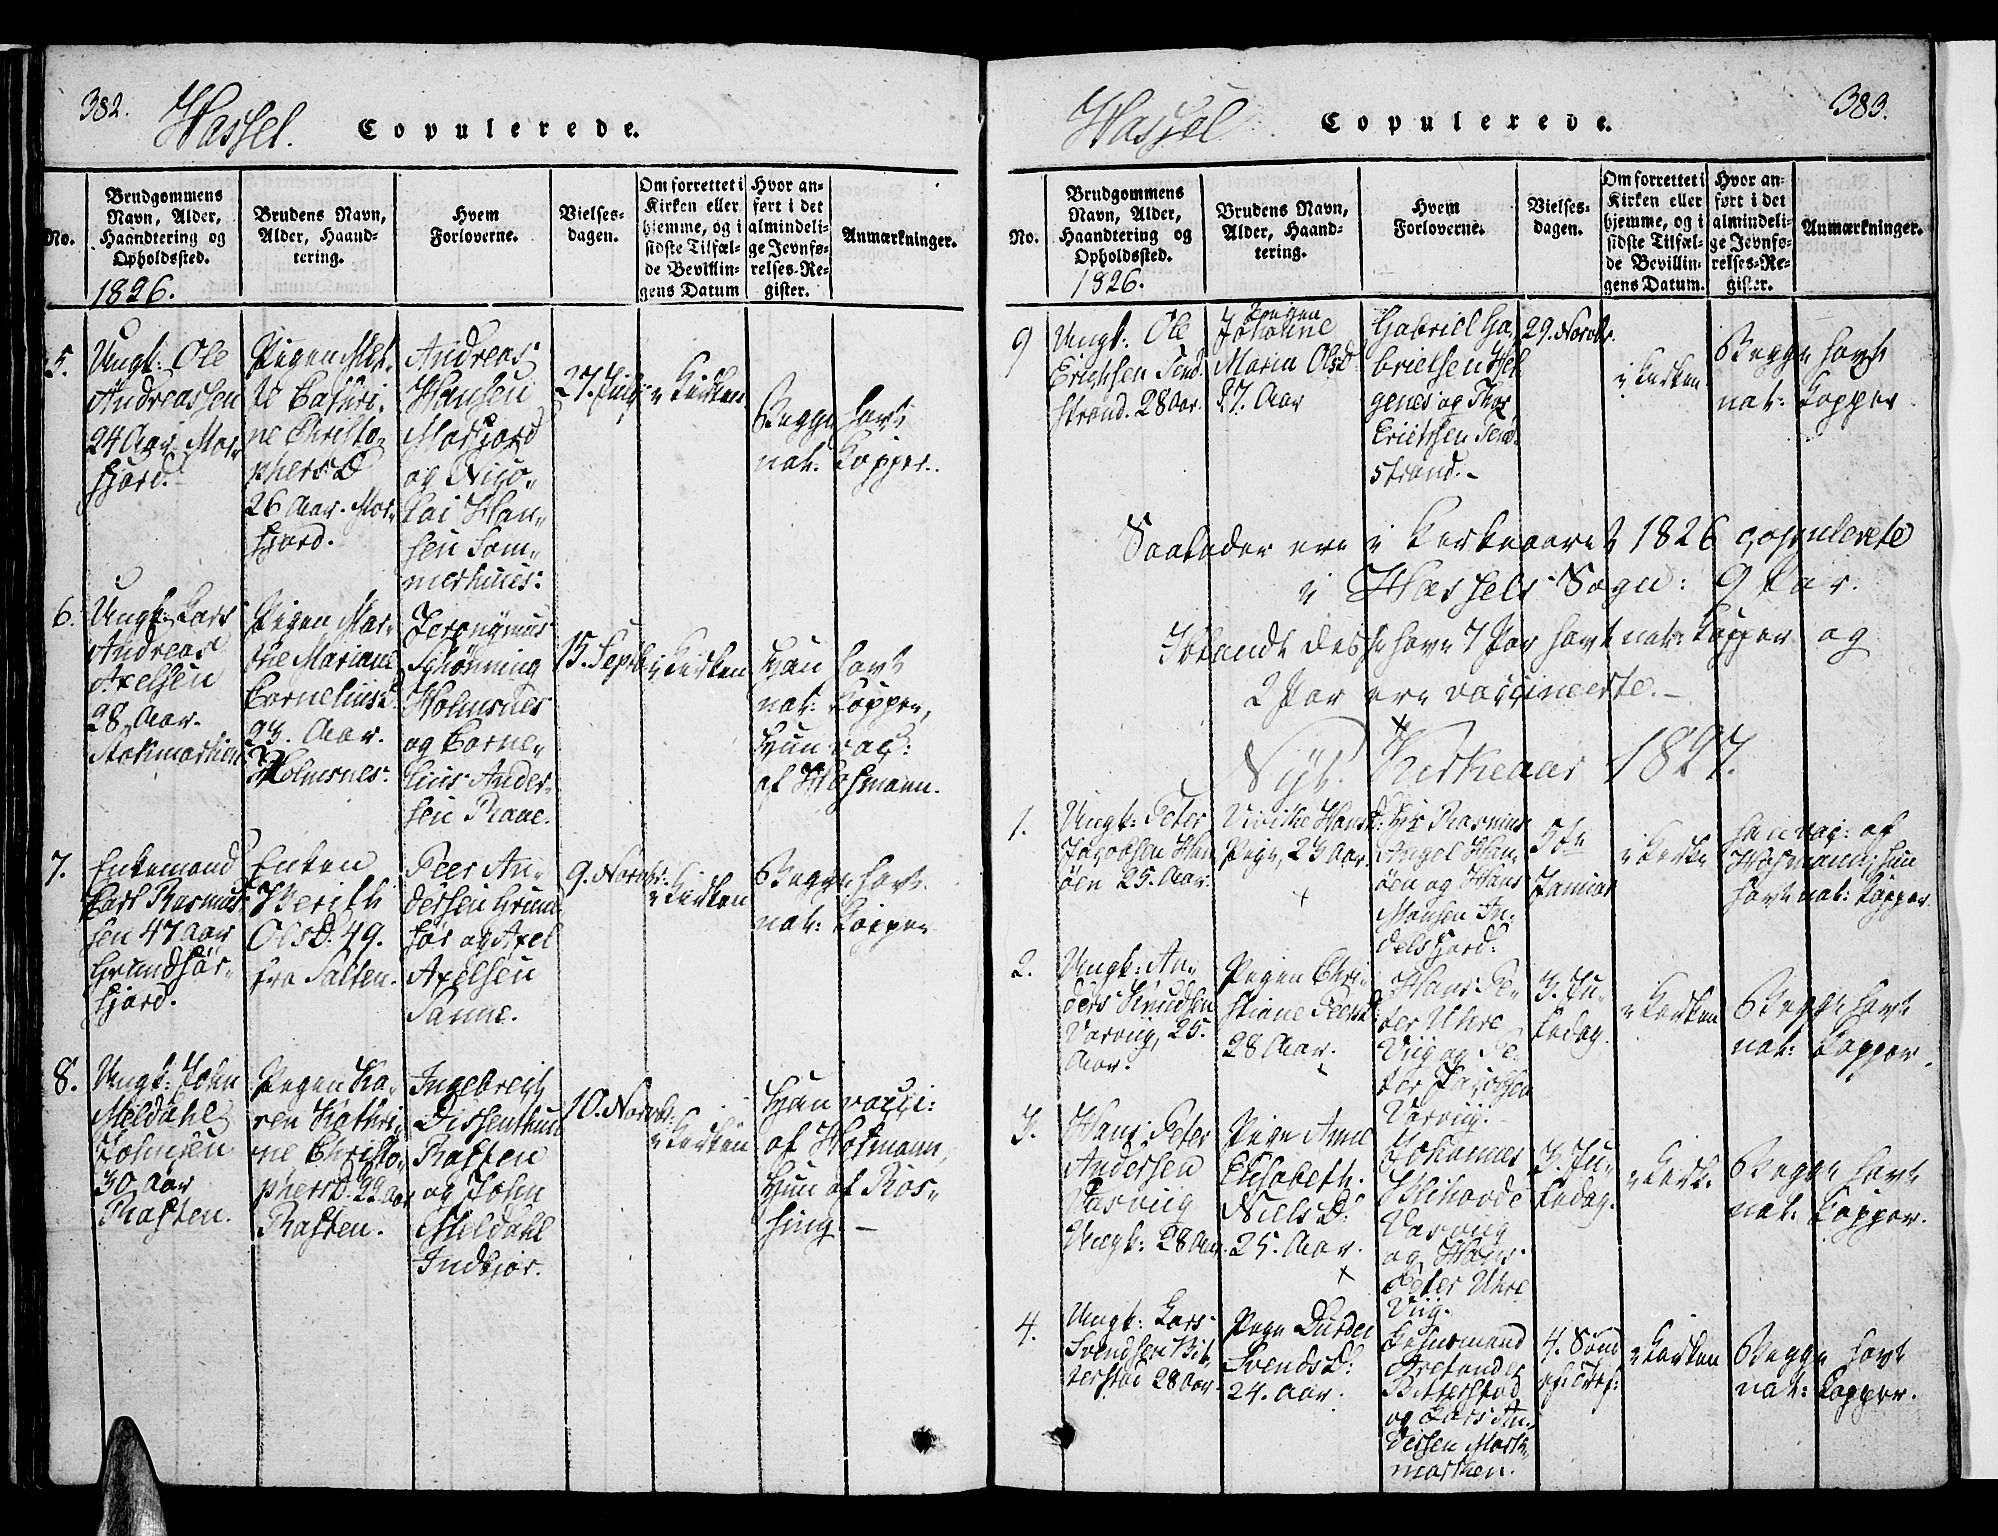 382.
Hassel.
Copulerede.
No.
Brudgommens
Navn, Alder,
Haandtering og
Opholdssted.
1826.
Brudens Navn,
Alder, Haand-
tering.
Hvem
Forloverne.
Vielses-
dagen.
Om forrettet i
Kirken eller
hjemme, og i
sidste Tilfæl-
de Bevillin-
gens Datum
Hvor an-
ført i det
almindeli-
ge Jevnfø-
relses-Re-
gister.
Anmærkninger.
5.
Ungk: Ole
Andreassen
24 Aar. Mel-
fjord.
Pigen Met-
te Cathri-
ne Christo-
phersD
26 Aar. Mel-
fjord.
Andreas
Hansen
Melfjord
og Nico-
lai Han-
sen Som-
merhuus:
27. July
i Kirken
Begge havt
nat: Kopper.
6.
Ungk: Lars
Andreas
Axelsen
28 Aar.
Stokmarknes
Pigen Mar-
the Mariane
CorneliusD.
23. Aar.
Holmsnes:
Jeronymus
Schönning
Holmsnes
og Corne-
lius Ander-
sen Raae.
15. Septbr
i Kirken
Han havt
nat: Kopper,
Hun vac:
af Hofmann.
7.
Enkemand
Lars Rasmus-
sen 47 Aar
Grundfør-
fjord.
Enken
Berith
OlsD: 49.
fra Salten.
Peer An-
dersen Grund-
før og Axel
Axelsen
Sanne.
9. Novbr.
i Kirken
Begge havt
nat: Kopper
8.
Ungk: John
Meldahl
Johnsen
30 Aar
Raften.
Pigen Ka-
ren Kathri-
ne Christo-
phersD. 22 Aar
Raften.
Ingebreth
Dissenthun
Raften
og John
Meldahl
Indbjor.
10. Novbr:
i Kirken
Han vacci:
af Hofmann,
Hun af Ros-
sing. –
383.
Hassel
Copulerede.
No.
Brudgommens
Navn, Alder,
Haandtering og
Opholdssted.
1826.
Brudens Navn,
Alder, Haand-
tering.
Hvem
Forloverne.
Vielses-
dagen.
Om forrettet i
Kirken eller
hjemme, og i
sidste Tilfæl-
de Bevillin-
gens Datum.
Hvor an-
ført i det
almindeli-
ge Jevnfø-
relses-Re-
gister.
Anmærkninger.
9
Ungk: Ole
Erichsen
strand. 28 Aar.
Pigen
Johanne
Maria OlsD
27. Aar
Gabriel Ga-
brielsen Hel-
genes og Thor
Erichsen
strand. –
29. Novbr.
i Kirken
Begge havt
nat: Kopper
Saaledes ere i Kirkeaaret 1826 copulerete
i Hassels Sogn: 9 Par.
Iblandt disse have 7 Par havt nat: Kopper og
2 Par ere vaccineerte. –
Nyt Kirkeaar 1827.
1.
Ungk: Peter
Jacobsen Han-
öen 25. Aar.
Vivike HansD:
Pige, 23 Aar
Hr Rasmus
Angel Han-
öen og Hans
Monsen In-
delsfjord:
5te
Januar
i Kirke
Han vac: af
Hofmann, hun
havt nat: Kopper
2.
Ungk: An-
ders Knudsen
Varviig, 25.
Aar.
Pigen Chri-
stiane PeersD:
28 Aar.
Hans Pe-
ter Uhre
Viig og Pe-
ter
Varviig.
3. Ju-
ledag.
i Kirken
Begge havt
nat: Kopper.
3.
Hans Peter
Andersen
Varviig
Ungk: 28 Aar.
Pige Anne
Elisabeth.
NielsD:
25. Aar.
Johannes
Varviig
og Hans
Peter Uhre
Viig.
3. Ju-
ledag.
i Kirk.
Begge havt
nat: Kopper.
4.
Ungk: Lars
Svendsen Bit-
terstad 28 Aar.
Pige Durdei
SvendsD:
24. Aar.
Lehnsmand
Bitterstad
og Lars An-
dersen Mark-
marken.
4. Sønd
ef: Tref:
i Kirken
Begge havt
nat: Kopper.